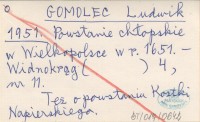 GOMOLEC Ludwik
1951. Powstanie chłopskie
w Wielkopolsce w r. 1651. –
Widnokrąg ( ) 4,
nr 11.
Tęs o powstaniu Kostki
Napierskiego.